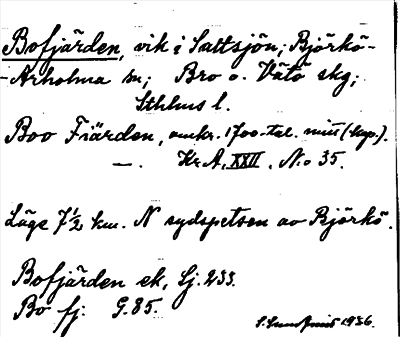 Bofjärden, vik i Saltsjön; Björkö-
-Arholma sn; Bro o. Vätö skg;
Sthlms l.
Boo Fiärden, omkr. 1700-tal. mitt (kop.).
—. Kr. A. XXII. No 35.
Läge 7½ km. N sydspetsen av Björkö.
Bofjärden ek, Sj. 233.
Bo fj. G. 85.
1936.